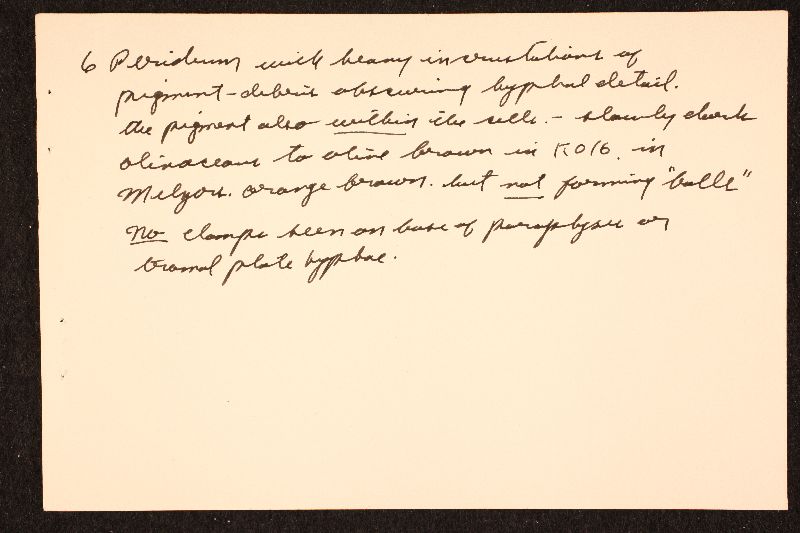 6 Peridium with heavy incrustations of
pigment-debris obscuring hyphal detail.
the pigment also within the cells. - slowly dark
olivaceous to olive brown in KOH. in
Melzers. orange brown. but not forming "balls"
No clamps seen on base of paraphyses or
tramal plate hyphae.